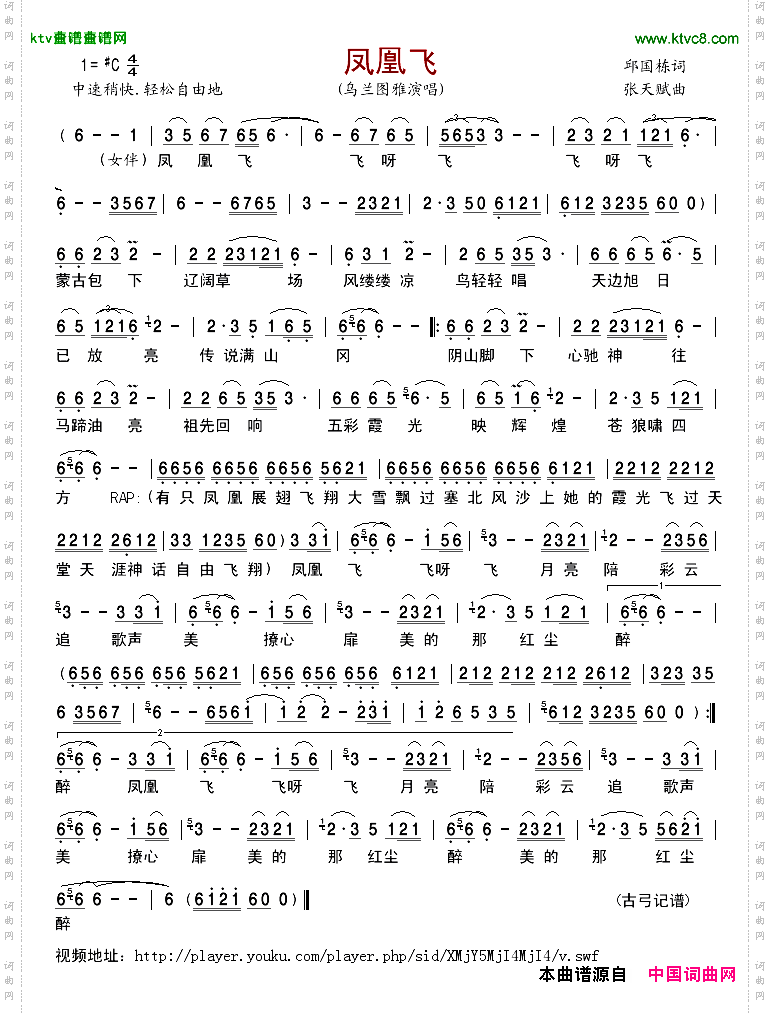 ktv曲谱曲谱网
www.ktvc8.com
凤凰飞
1=#C 4/4
邱国栋词
中速稍快.轻松自由地
(乌兰图雅演唱)
张天赋曲
( 6 - - 1 | 3 5 6 7 656 · | 6 - 67 65 | 5653 3 - - | 23 21 121 6 · |
(女伴) 凤 凰 飞 飞 呀 飞 飞 呀 飞
6 - - 3567 | 6 - - 6765 | 3 - - 2321 | 2 · 3 50 6121 | 612 3235 60 0 ) |
6 6 23 2 - | 2 2 23121 6 - | 6 31 2 - | 2 26 5 35 3 · | 6 6 6 5 6 · 5 |
蒙古包 下 辽阔草 场 风缕缕 凉 鸟轻轻 唱 天边旭 日
6 5 1216 2 - | 2 · 3 5 1 6 5 | 6 6 6 - - |: 6 6 23 2 - | 2 2 23121 6 - |
已 放 亮 传 说满 山 冈 阴山脚 下 心驰 神 往
6 6 23 2 - | 2 2 6 5 35 3 · | 6 6 6 5 6 · 5 | 6 5 1 6 2 - | 2 · 3 5 121 |
马蹄油 亮 祖先回 响 五彩 霞 光 映 辉 煌 苍 狼啸 四
6 6 6 - - | 6656 6656 6656 5621 | 6656 6656 6656 6121 | 2212 2212
方 RAP:(有 只 凤 凰 展 翅 飞 翔 大 雪 飘 过 塞 北 风 沙 上 她 的 霞 光 飞 过 天
2212 2612 | 33 1235 60 ) 3 31 | 6 6 6 - 1 56 | 3 - - 2321 | 2 - - 2356 |
堂 天 涯 神 话 自 由 飞 翔) 凤凰 飞 飞呀 飞 月 亮 陪 彩 云
3 - - 3 31 | 6 6 6 - 1 56 | 3 - - 2321 | 2 · 3 5 1 2 1 | 6 6 6 - - |
追 歌声 美 撩心 扉 美 的 那 红 尘 醉
(656 656 656 5621 | 656 656 656 6121 | 212 212 212 2612 | 323 35
6 3567 | 6 - - 6561 | 1 2 2 - 231 | 1 2 6 5 35 | 612 3235 60 0 ) :|
6 6 6 - 3 31 | 6 6 6 - 1 56 | 3 - - 2321 | 2 - - 2356 | 3 - - 3 31 |
醉 凤凰 飞 飞呀 飞 月 亮 陪 彩 云 追 歌声
6 6 6 - 1 56 | 3 - - 2321 | 2 · 3 5 121 | 6 6 6 - 2321 | 2 · 3 5 5621 |
美 撩心 扉 美 的 那 红尘 醉 美 的 那 红 尘
6 6 6 - - | 6 (6121 60 0) ‖
(古弓记谱)
醉
视频地址: http://player.youku.com/player.php/sid/XMjY5MjI4MjI4/v.swf
本曲谱源自 中国词曲网